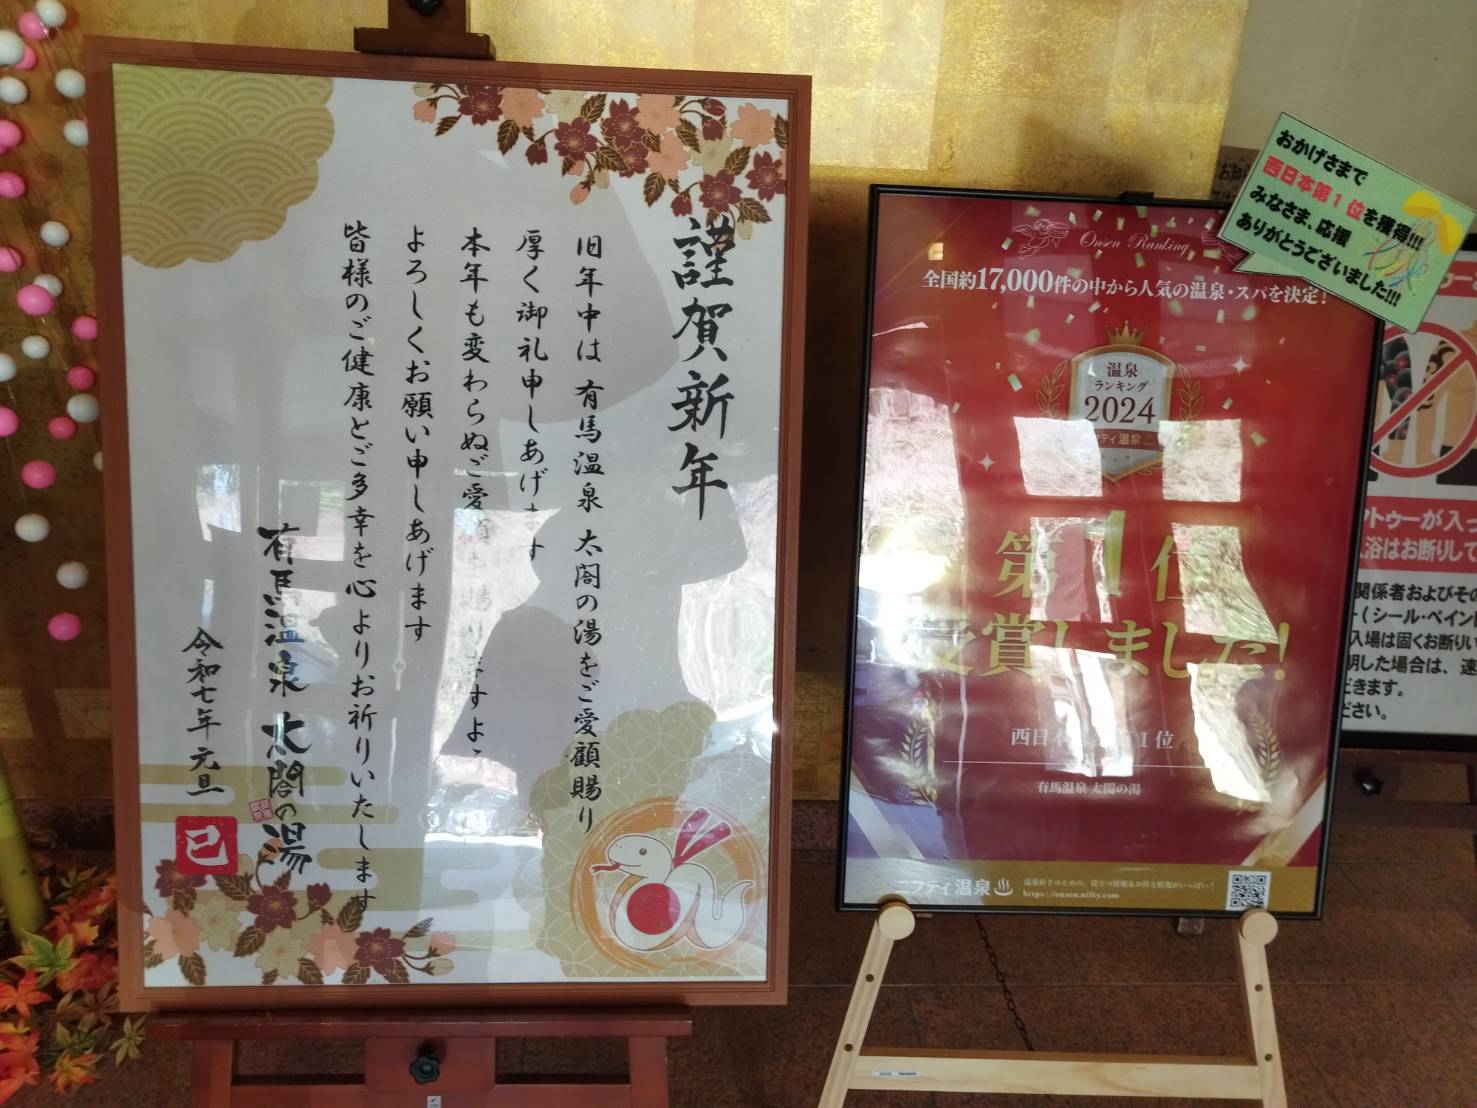 謹賀新年
旧年中は 有馬温泉 太閤の湯をご愛顧賜り
厚く御礼申しあげます
本年も変わらぬご愛顧を賜りますよう
よろしくお願い申しあげます
皆様のご健康とご多幸を 心よりお祈りいたします
有馬温泉 太閤の湯
令和七年 元旦
巳
おかげさまで
西日本第1位を獲得!!!
みなさま、応援
ありがとうございました!!!
Onsen Ranking
全国約17,000件の中から人気の温泉・スパを決定!
温泉
ランキング
2024
ニフティ温泉
第1位
受賞しました!
西日本 第1位
有馬温泉 太閤の湯
ニフティ温泉
温泉好きのための、役立つ情報&お得な情報がいっぱい!
https://onsen.nifty.com
お知
トゥーが入っ
浴はお断りして
関係者およびその
(シール・ペイント
入場は固くお断りい
明した場合は、速
できます。
ださい。